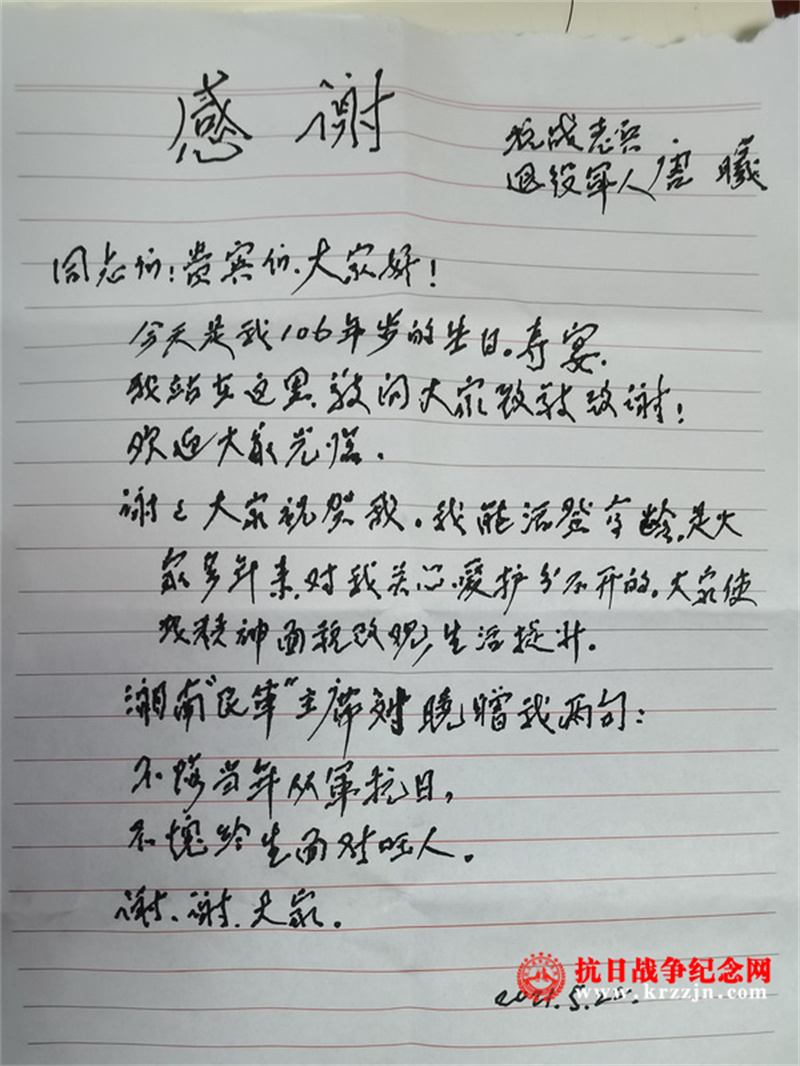 感 谢
抗战老兵
退役军人 唐 曦
同志们:贵宾们、大家好!
今天是我106年岁的生日。寿宴、
我站在这里、敬向大家致敬致谢!
欢迎大家光临.
谢谢大家祝贺我。我能活登今龄,是大
家多年来对我关心爱护分不开的。大家使
我精神面貌改观,生活提升。
湘南"民革"主席刘晓赠我两句:
不悔当年从军抗日,
不愧终生面对旺人。
谢、谢、大家。
2021.5.2
抗日战争纪念网
www.krzzjn.com